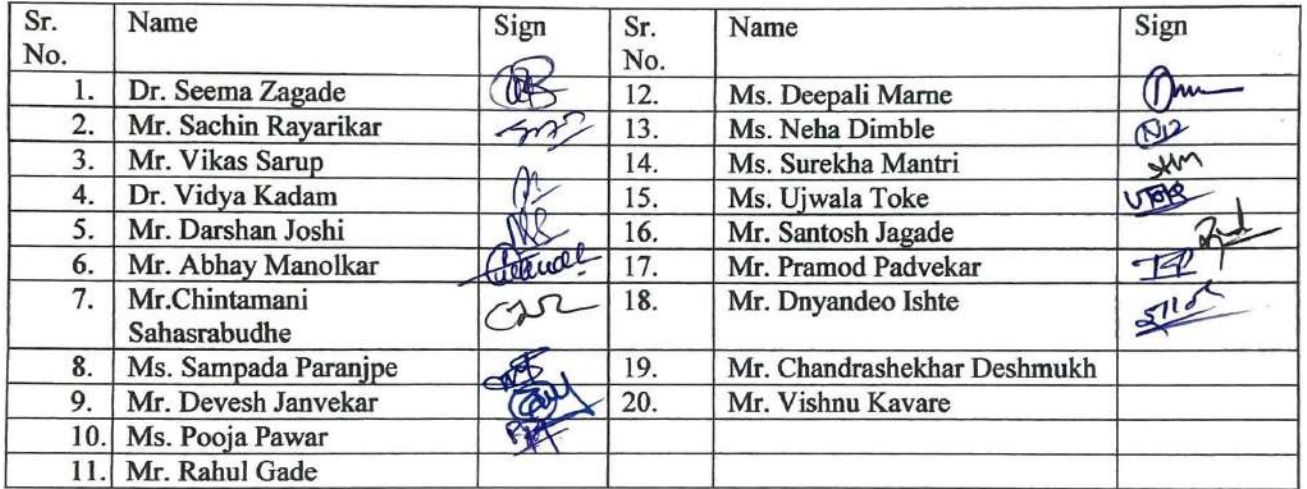 Sr. No. Name Sign Sr. No. Name Sign
1. Dr. Seema Zagade 12. Ms. Deepali Marne
2. Mr. Sachin Rayarikar 13. Ms. Neha Dimble
3. Mr. Vikas Sarup 14. Ms. Surekha Mantri
4. Dr. Vidya Kadam 15. Ms. Ujwala Toke
5. Mr. Darshan Joshi 16. Mr. Santosh Jagade
6. Mr. Abhay Manolkar 17. Mr. Pramod Padvekar
7. Mr.Chintamani 18. Mr. Dnyandeo Ishte
Sahasrabudhe
8. Ms. Sampada Paranjpe 19. Mr. Chandrashekhar Deshmukh
9. Mr. Devesh Janvekar 20. Mr. Vishnu Kavare
10. Ms. Pooja Pawar
11. Mr. Rahul Gade